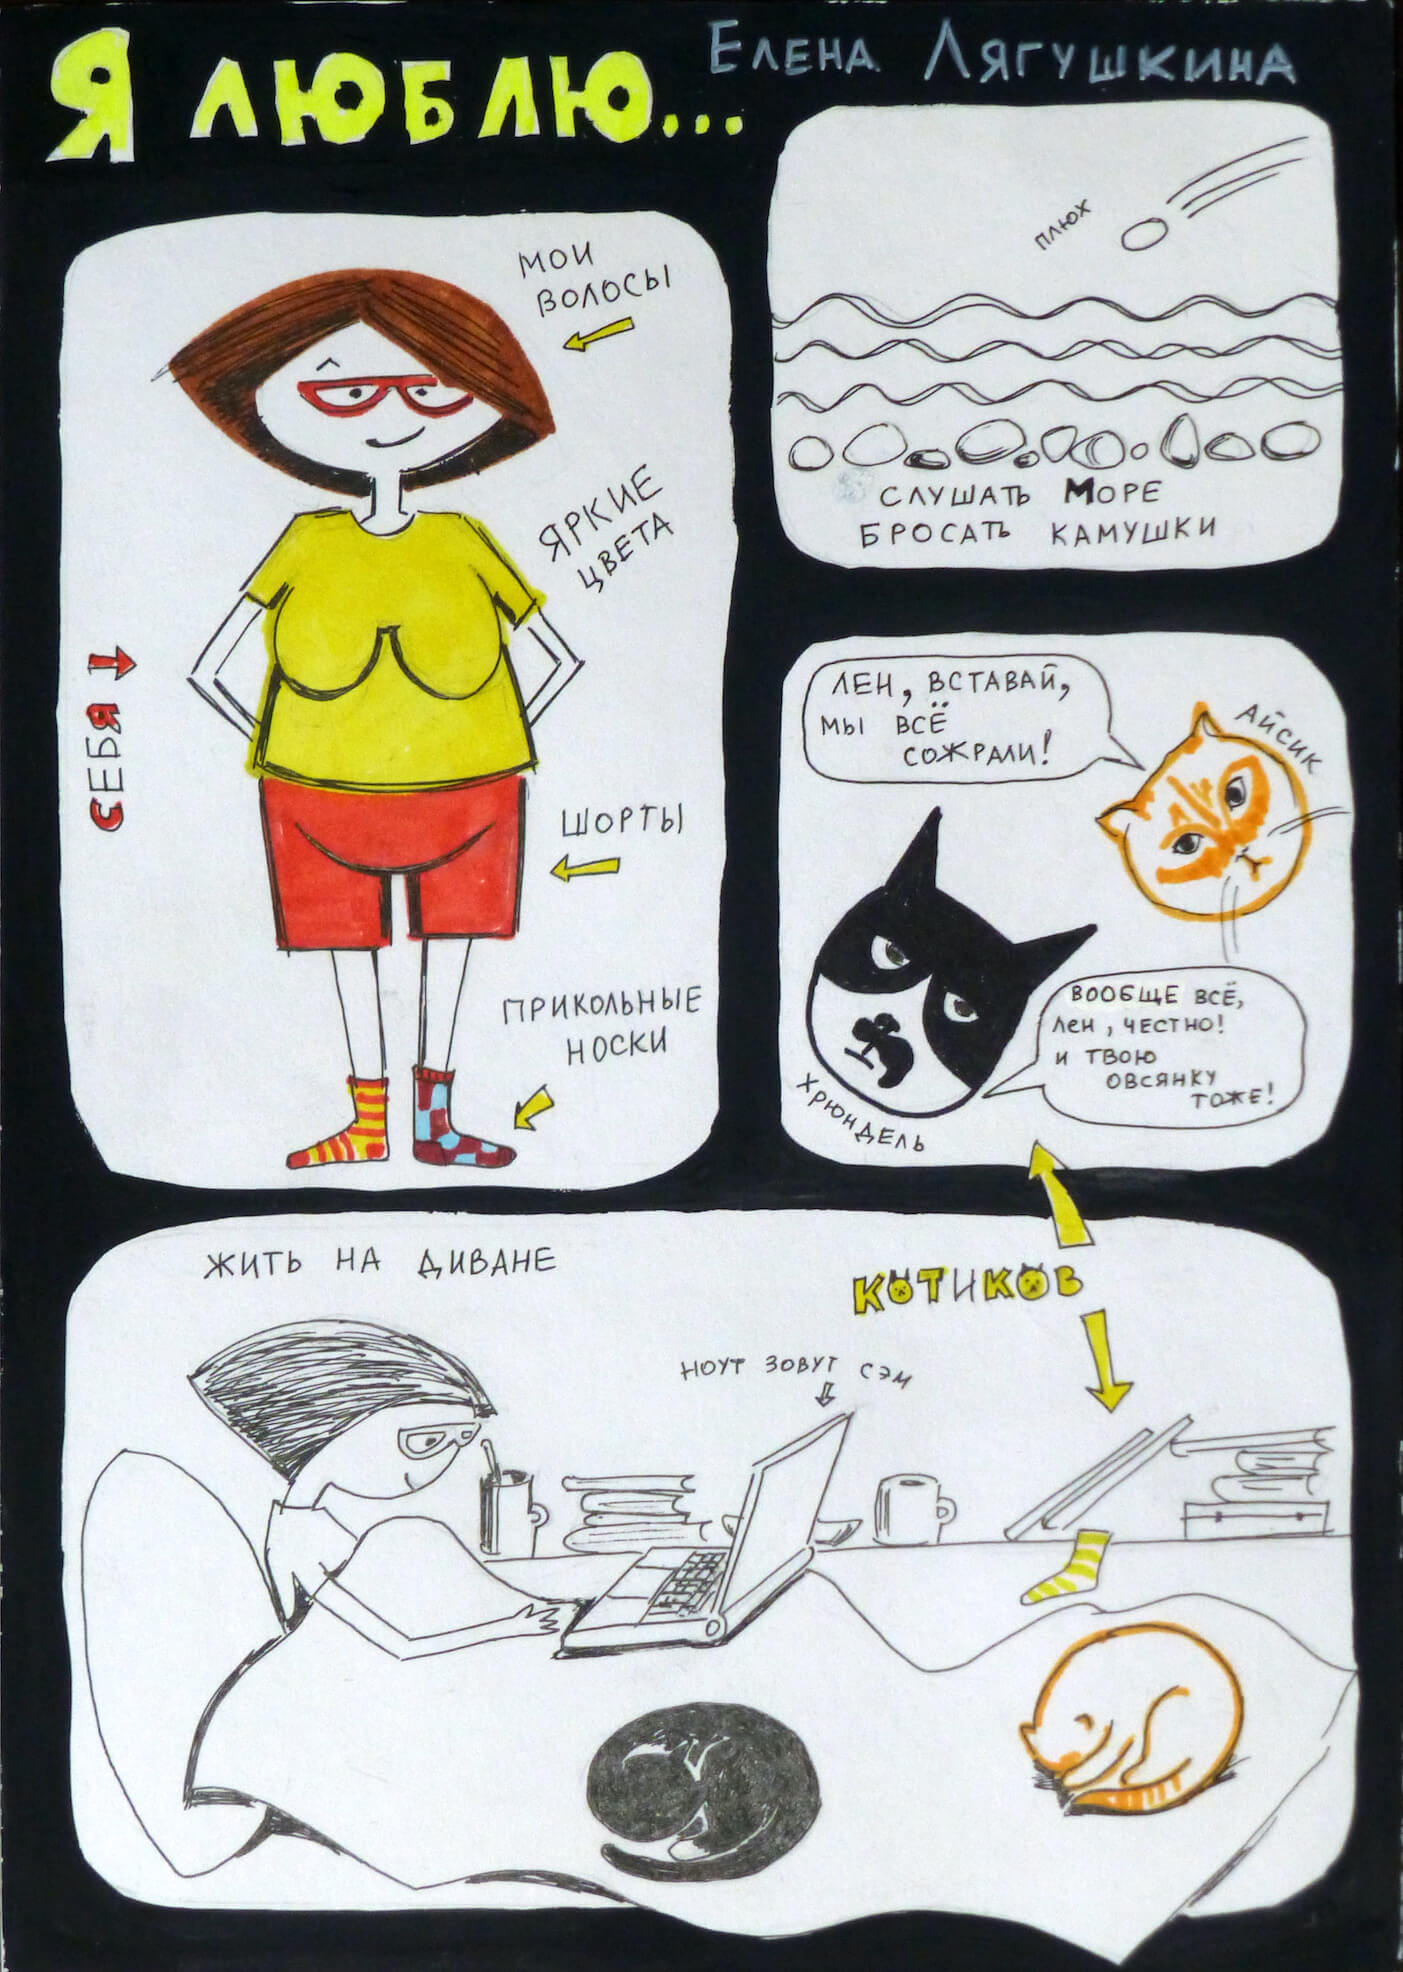 Я ЛЮБЛЮ...
ЕЛЕНА ЛЯГУШКИНА
МОИ
ВОЛОСЫ
ЯРКИЕ
ЦВЕТА
СЕБЯ
ШОРТЫ
ПРИКОЛЬНЫЕ
НОСКИ
ПЛЮХ
СЛУШАТЬ МОРЕ
БРОСАТЬ КАМУШКИ
ЛЕН, ВСТАВАЙ,
МЫ ВСЁ
СОЖРАЛИ!
АЙСИК
ВООБЩЕ ВСЁ,
ЛЕН, ЧЕСТНО!
И ТВОЮ
ОВСЯНКУ
ТОЖЕ!
ХРЮНДЕЛЬ
КОТИКОВ
ЖИТЬ НА ДИВАНЕ
НОУТ ЗОВУТ СЭМ